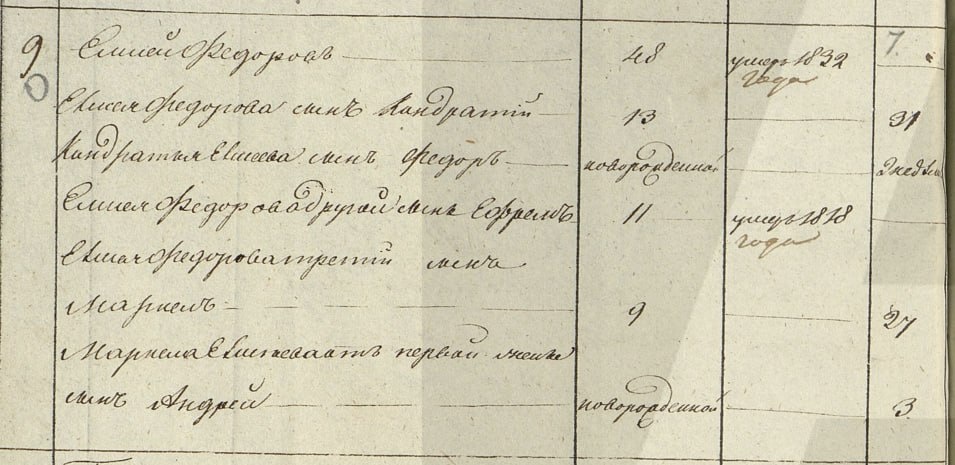 9 Елисей Федоровъ 48 умеръ 1832 7
0 года
Елисея Федорова сынъ Кондратий 13 31
Кондратья Елисеева сынъ Федоръ новорожденной 2 недели
Елисея Федорова другой сынъ Ефремъ 11 умеръ 1818
года
Елисея Федорова третий сынъ
Маркелъ 9 27
Маркела Елисеева отъ первой жены
сынъ Андрей новорожденной 3